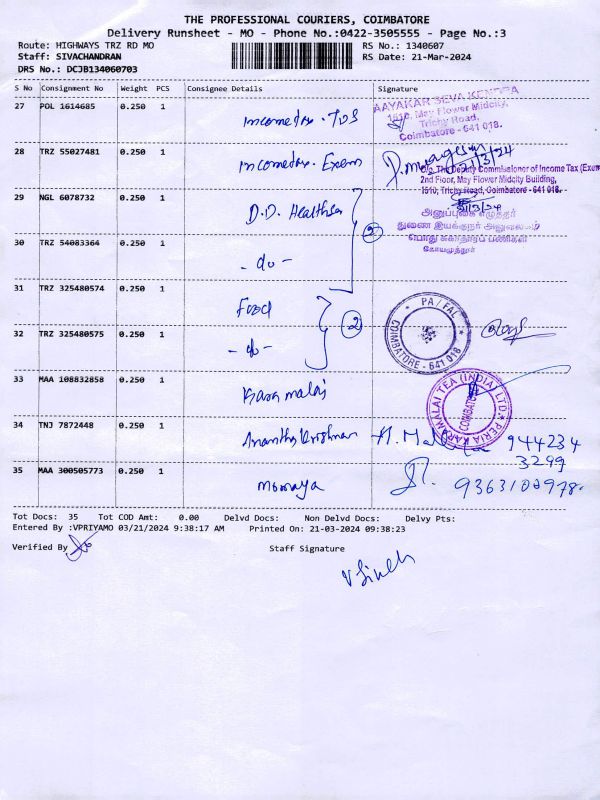 THE PROFESSIONAL COURIERS, COIMBATORE
Delivery Runsheet - MO - Phone No.:0422-3505555 - Page No.:3
Route: HIGHWAYS TRZ RD MO
RS No.: 1340607
Staff: SIVACHANDRAN
RS Date: 21-Mar-2024
DRS No.: DCJB134060703
S No Consignment No Weight PCS Consignee Details Signature
27 POL 1614685 0.250 1 Incometax. TDS
AAYAKAR SEVA KENDRA
1510, May Flower Midcity,
Trichy Road,
Coimbatore - 641 018.
28 TRZ 55027481 0.250 1 Incometax. Exem
21/3/24
O/o. The Deputy Commissioner of Income Tax (Exem
2nd Floor, May Flower Midcity Building,
1510, Trichy Road, Coimbatore - 641 018.
29 NGL 6078732 0.250 1 D.D. Health
அனுப்புகை எழுத்தர்
துணை இயக்குநர் அலுவலகம்
பொது சுகாதாரப் பணிகள்
கோயமுத்தூர்
30 TRZ 54083364 0.250 1 - do -
2
31 TRZ 325480574 0.250 1 Food
PA/FAC
COIMBATORE - 641 018
32 TRZ 325480575 0.250 1 - do -
2
33 MAA 108832858 0.250 1 Karamalai
PERIA KARAMALAI TEA (INDIA) LTD.
COIMBATORE
34 TNJ 7872448 0.250 1 Ananthakrishnan
944234
3299
35 MAA 300505773 0.250 1 momaya
9363102978.
Tot Docs: 35 Tot COD Amt: 0.00 Delvd Docs: Non Delvd Docs: Delvy Pts:
Entered By :VPRIYAMO 03/21/2024 9:38:17 AM Printed On: 21-03-2024 09:38:23
Verified By
Staff Signature